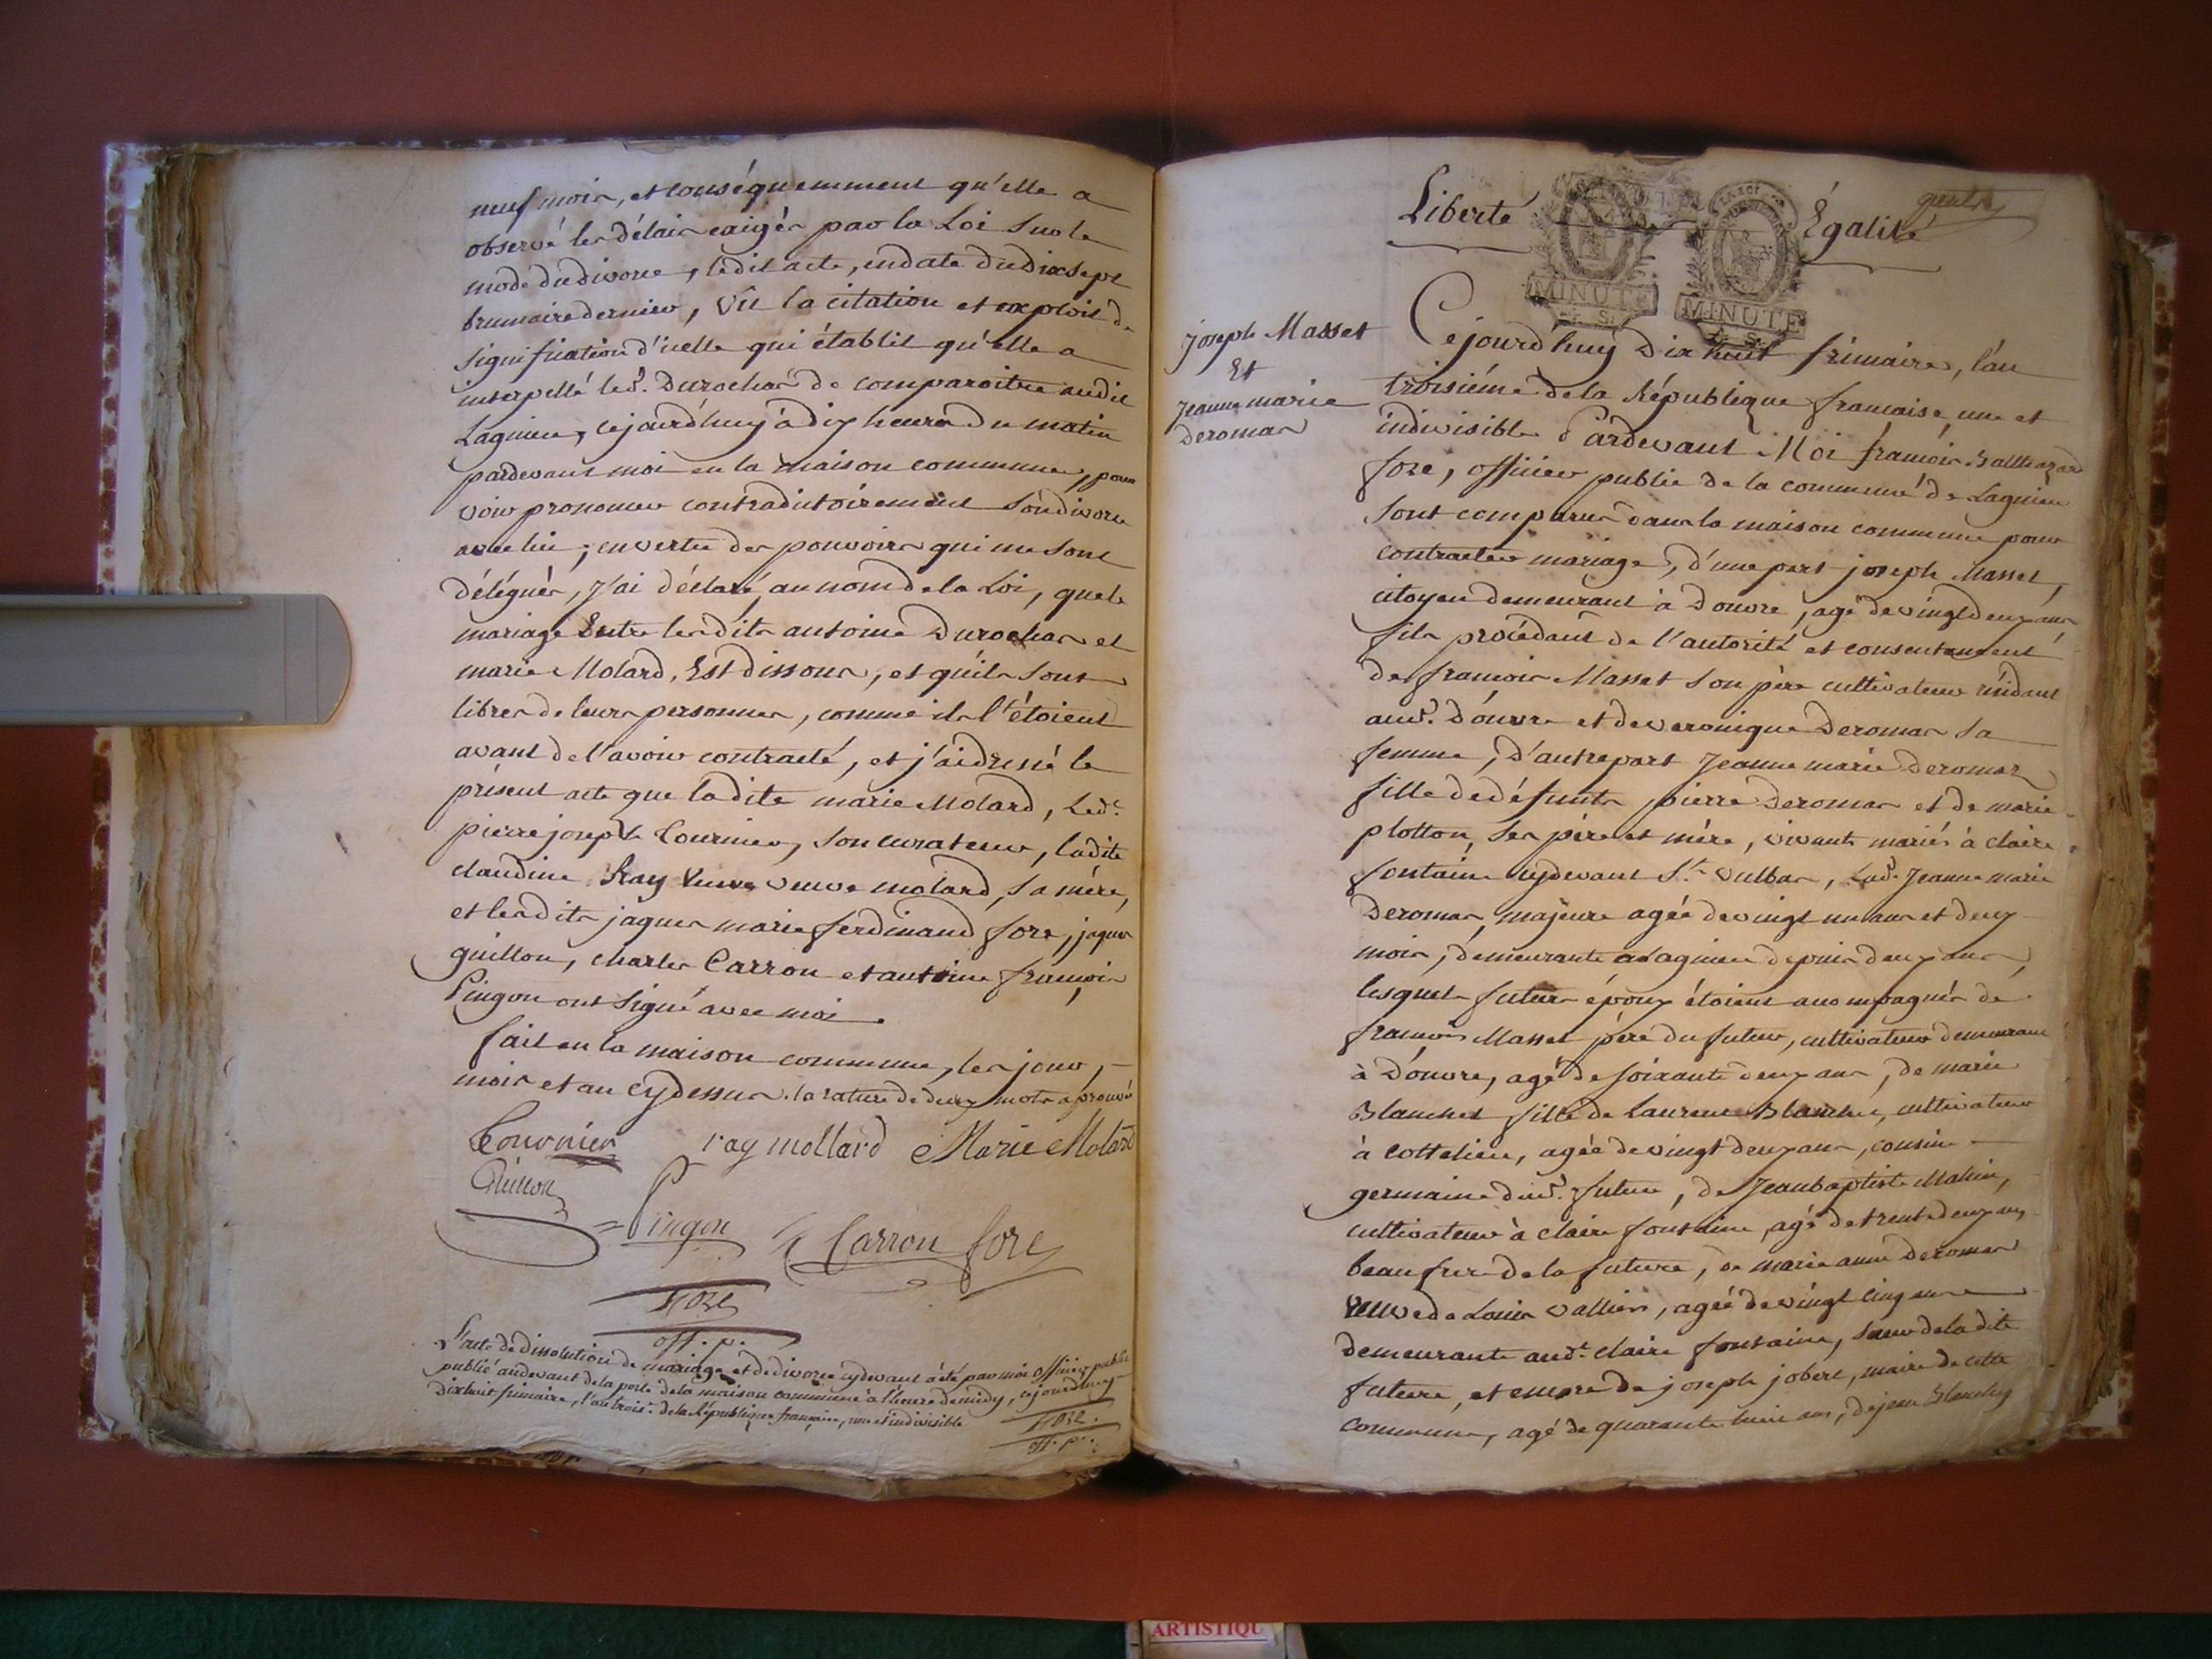 neuf mois, et conséquemment qu'elle a
observé les délais exigés par la Loi sur le
mode du divorce, ledit acte, en date du dixsept
brumaire dernier, vû la citation et exploit de
signification d'icelle qui établit qu'elle a
interpellé led. Durochas de comparoitre audit
Lagnieu, cejourd'huy à dix heures du matin
pardevant moi en la maison commune, pour
voir prononcer contradictoirement son divorce
avec lui; en vertu des pouvoirs qui me sont
délégués, J'ai déclaré au nom de la Loi, que le
mariage Entre lesdits antoine Durochas et
marie Molard, Est dissous, et qu'ils sont
libres de leurs personnes, comme ils l'étoient
avant de l'avoir contracté, et j'ai dressé le
présent acte que ladite marie Molard, Led.t
pierre joseph Tournier, son curateur, ladite
claudine Ray veuve molard, sa mère,
et lesdits jaques marie ferdinand fore, jaques
guillon, charles Carron et antoine françois
Pingon ont signé avec moi.
fait en la maison commune, les jour,
mois et an cydessus. la rature de deux mots aprouvée
Tournier ray mollard Marie Molard
Guillon
Pingon Carron fore
fore
off. p.
L'acte de dissolution de mariage et de divorce cydevant a été par moi officier public
publié audevant de la porte de la maison commune à l'heure de midy, cejourd'huy
dixhuit frimaire, l'an trois.e de la République française, une et indivisible
fore.
off. p.
Liberté Égalité
MINUTE
MINUTE
joseph Masset
Et
Jeanne marie
Deromas
Cejourd'huy Dix huit frimaire, l'an
troisiéme de la République francaise, une et
indivisible Pardevant Moi françois Balthazard
fore, officier public de la commune de Lagnieu
sont comparus dans la maison commune pour
contracter mariage, d'une part joseph Masset,
citoyen demeurant à Douvre, agé de vingt deux ans
fils procédant de l'autorité et consentement
de françois Masset son père cultivateur résidant
aud. Douvre et de veronique Deromas sa
femme, D'autre part Jeanne marie Deromas
fille de défunts pierre Deromas et de marie
plotton, ses père et mère, vivants mariés à claire
fontaine cydevant S.t vulbas, Lad. Jeanne marie
Deromas, majeure agée de vingt un ans et deux
mois, demeurante à Lagnieu depuis deux ans,
lesquels futurs époux étoient accompagnés de
françois Masset père du futur, cultivateur demeurant
à Douvre, agé de soixante deux ans, de marie
Blanchet fille de Laurent Blanchet, cultivateur
à cottelieu, agée de vingt deux ans, cousine
germaine dud. futur, de Jean baptiste Malin,
cultivateur à claire fontaine, agé de trente deux ans
beau frere de la future, de marie anne Deromas
veuve de Louis vallier, agée de vingt cinq ans
demeurante aud.t claire fontaine, sœur de la dite
future, et encore de joseph jobert, maire de cette
commune, agé de quarante huit ans, de jean Blanchet